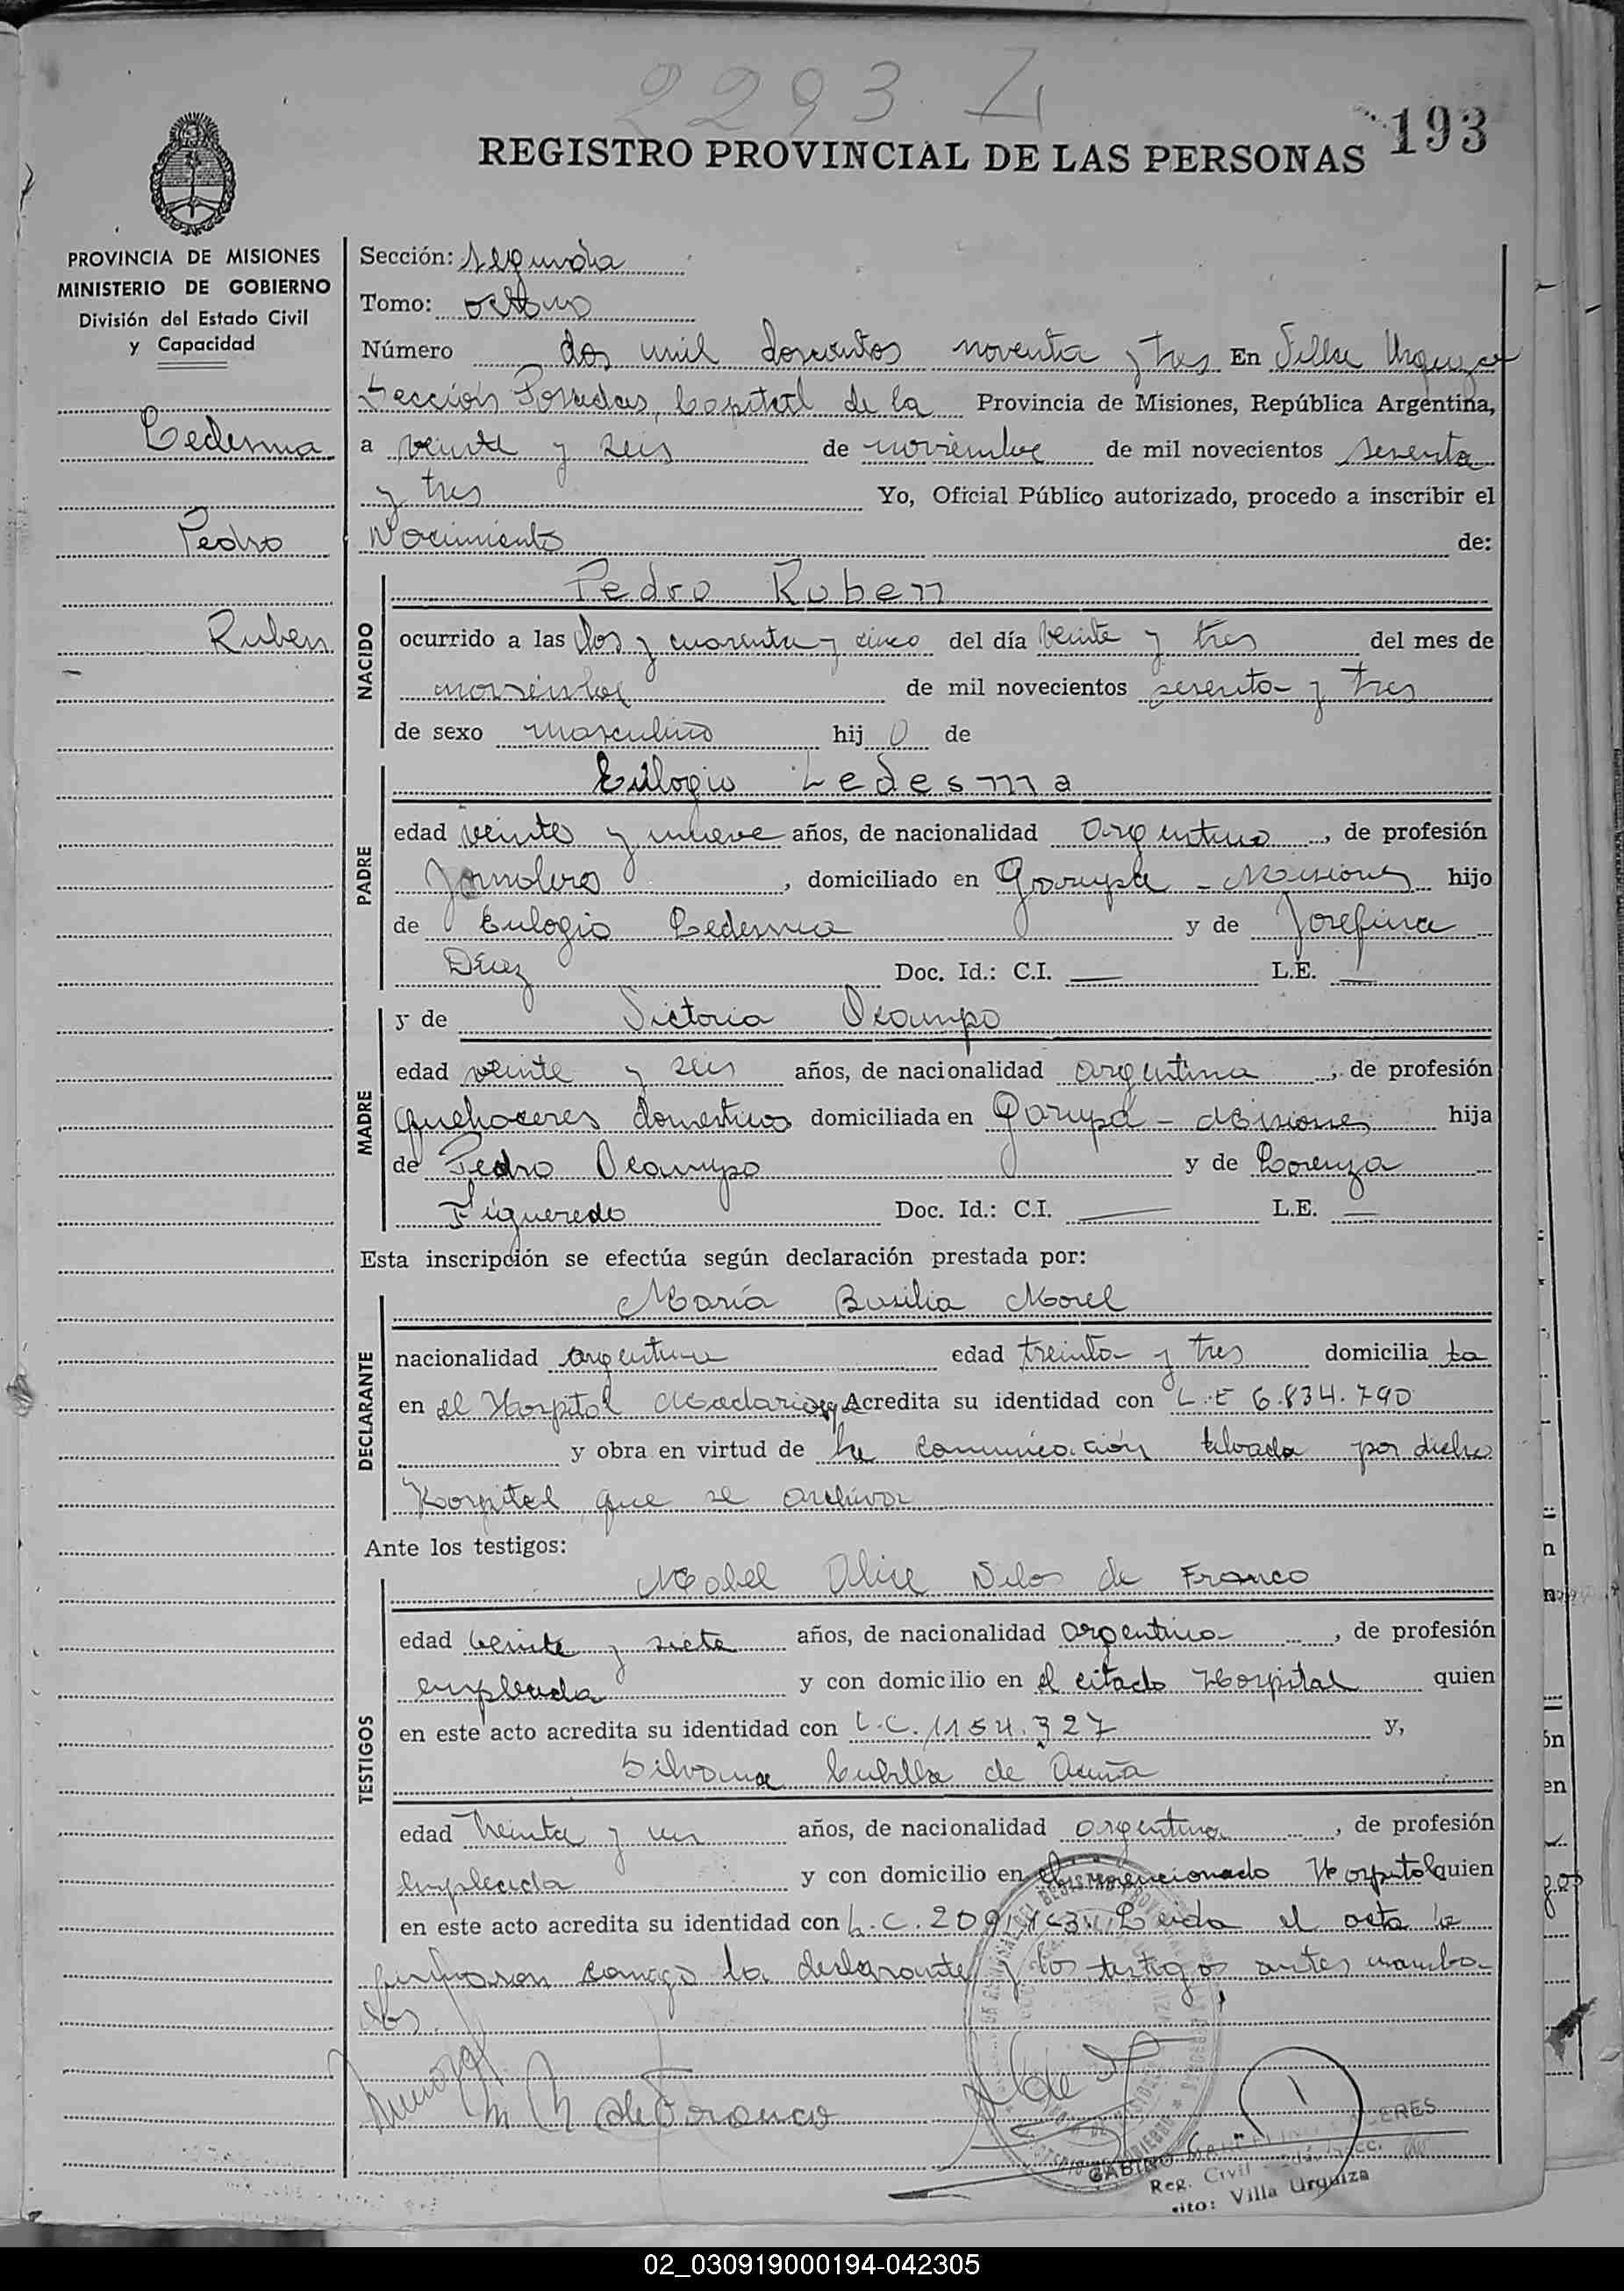 2293 L
193
REGISTRO PROVINCIAL DE LAS PERSONAS
PROVINCIA DE MISIONES
MINISTERIO DE GOBIERNO
División del Estado Civil
y Capacidad
Ledesma
Pedro
Ruben
Sección: segunda
Tomo: octavo
Número dos mil doscientos noventa y tres En Villa Urquiza
Sección Posadas, Capital de la Provincia de Misiones, República Argentina,
a veinte y seis de noviembre de mil novecientos sesenta
y tres Yo, Oficial Público autorizado, procedo a inscribir el
Nacimiento de:
NACIDO
Pedro Ruben
ocurrido a las dos y cuarenta y cinco del día veinte y tres del mes de
noviembre de mil novecientos sesenta y tres
de sexo masculino hij o de
PADRE
Eulogio Ledesma
edad veinte y nueve años, de nacionalidad argentino, de profesión
Jornalero, domiciliado en Garupá - Misiones hijo
de Eulogio Ledesma y de Josefina
Díaz Doc. Id.: C.I. — L.E. —
MADRE
y de Victoria Ocampo
edad veinte y seis años, de nacionalidad argentina, de profesión
quehaceres domesticos domiciliada en Garupá - Misiones hija
de Pedro Ocampo y de Lorenza
Figueredo Doc. Id.: C.I. — L.E. —
Esta inscripción se efectúa según declaración prestada por:
DECLARANTE
María Basilia Morel
nacionalidad argentina edad treinta y tres domicilia ta
en el Hospital Madariaga Acredita su identidad con L.E 6.834.790
y obra en virtud de la comunicación elevada por dicho
Hospital que se archiva
Ante los testigos:
TESTIGOS
Mabel Alice de Franco
edad veinte y siete años, de nacionalidad argentina, de profesión
empleada y con domicilio en el citado Hospital quien
en este acto acredita su identidad con L.C. 1154.327 y,
Silvana Cubilla de Acuña
edad treinta y un años, de nacionalidad argentina, de profesión
empleada y con domicilio en el mencionado Hospital quien
en este acto acredita su identidad con L.C. Leida el acta la
firmaron conmigo la declarante y los testigos antes nombra-
dos
M N de Franco
GABINO MARCELINO CACERES
Reg. Civil
Villa Urquiza
02_030919000194-042305